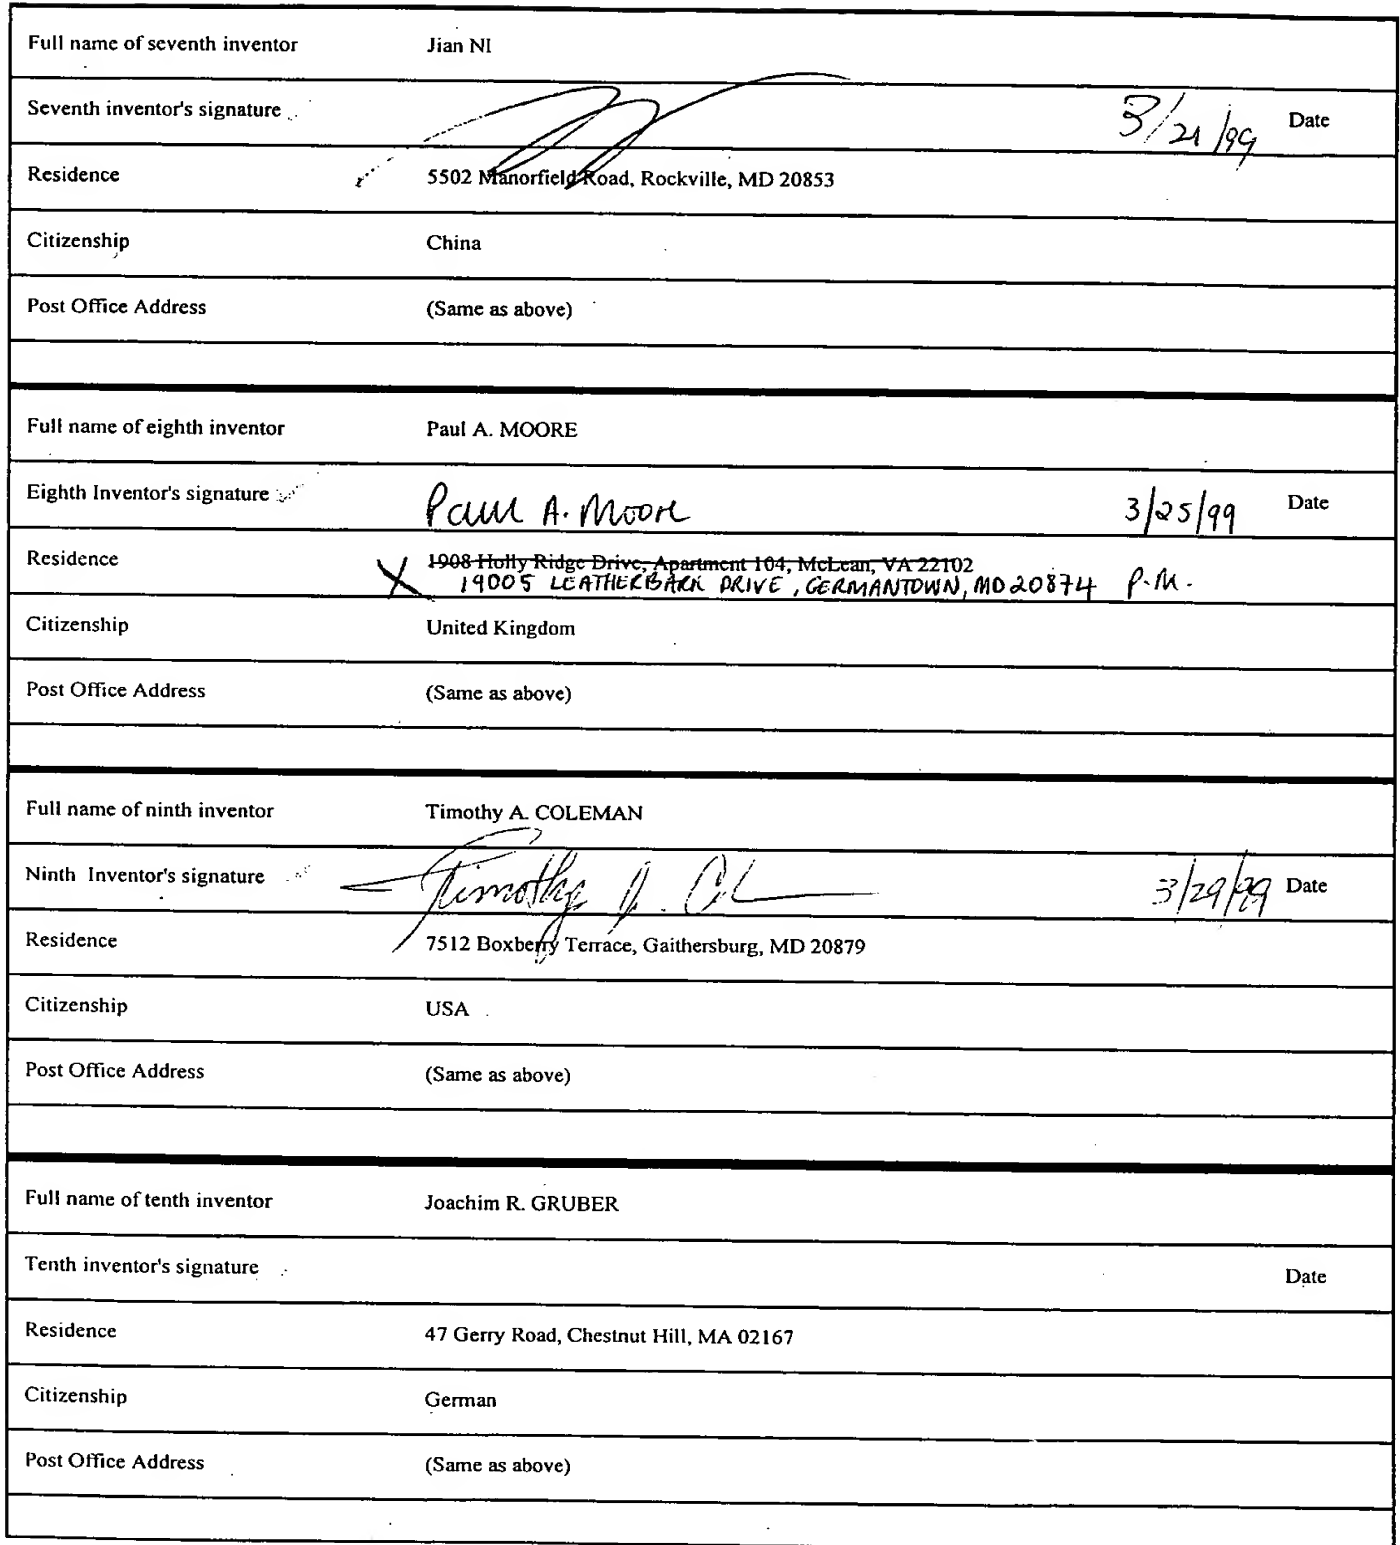 Full name of seventh inventor Jian NI
Seventh inventor's signature 3/21/99 Date
Residence 5502 Manorfield Road, Rockville, MD 20853
Citizenship China
Post Office Address (Same as above)
Full name of eighth inventor Paul A. MOORE
Eighth Inventor's signature Paul A. Moore 3/25/99 Date
Residence 1908 Holly Ridge Drive, Apartment 104, McLean, VA 22102
X 19005 LEATHERBARK DRIVE, GERMANTOWN, MD 20874 P.M.
Citizenship United Kingdom
Post Office Address (Same as above)
Full name of ninth inventor Timothy A. COLEMAN
Ninth Inventor's signature Timothy A. 3/29/99 Date
Residence 7512 Boxberry Terrace, Gaithersburg, MD 20879
Citizenship USA
Post Office Address (Same as above)
Full name of tenth inventor Joachim R. GRUBER
Tenth inventor's signature Date
Residence 47 Gerry Road, Chestnut Hill, MA 02167
Citizenship German
Post Office Address (Same as above)